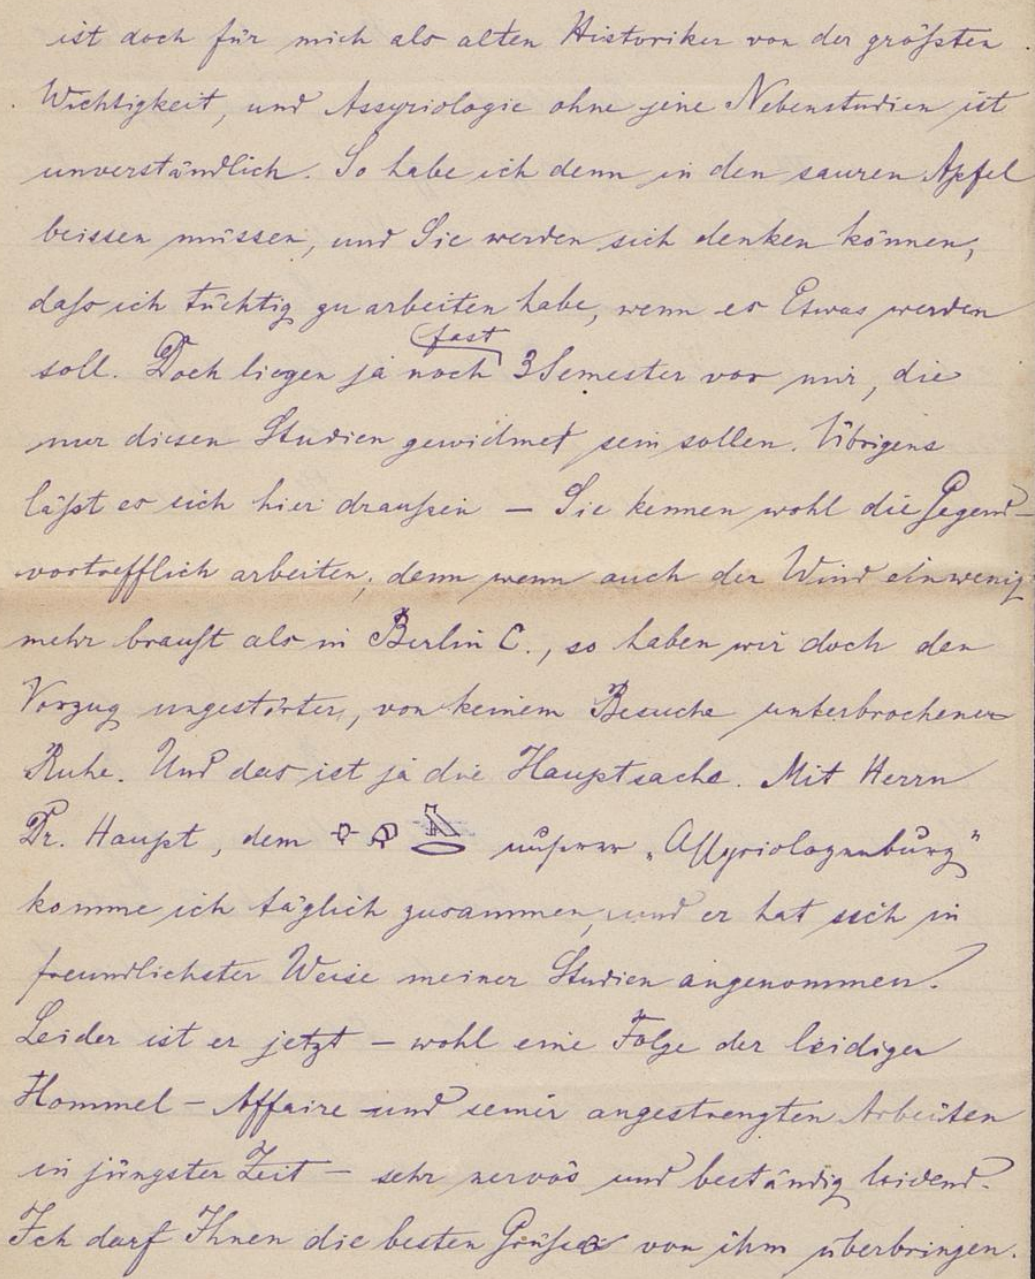 ist doch für mich als alten Historiker von der größten
Wichtigkeit, und Assyriologie ohne jene Nebenstudien ist
unverständlich. So habe ich denn in den sauren Apfel
beissen müssen, und Sie werden sich denken können,
daß ich tüchtig zu arbeiten habe, wenn es Etwas werden
fast
soll. Doch liegen ja noch 3 Semester vor mir, die
nur diesen Studien gewidmet sein sollen. Übrigens
läßt es sich hier draußen – Sie kennen wohl die Gegend –
vortrefflich arbeiten, denn wenn auch der Wind ein wenig
mehr braust als in Berlin C., so haben wir doch den
Vorzug ungestörter, von keinem Besuche unterbrochener
Ruhe. Und das ist ja die Hauptsache. Mit Herrn
Dr. Haupt, dem unserer „Assyriologenburg"
komme ich täglich zusammen, und er hat sich in
freundlichster Weise meiner Studien angenommen.
Leider ist er jetzt – wohl eine Folge der leidigen
Hommel-Affaire und seiner angestrengten Arbeiten
in jüngster Zeit – sehr nervös und beständig leidend.
Ich darf Ihnen die besten Grüße von ihm überbringen.